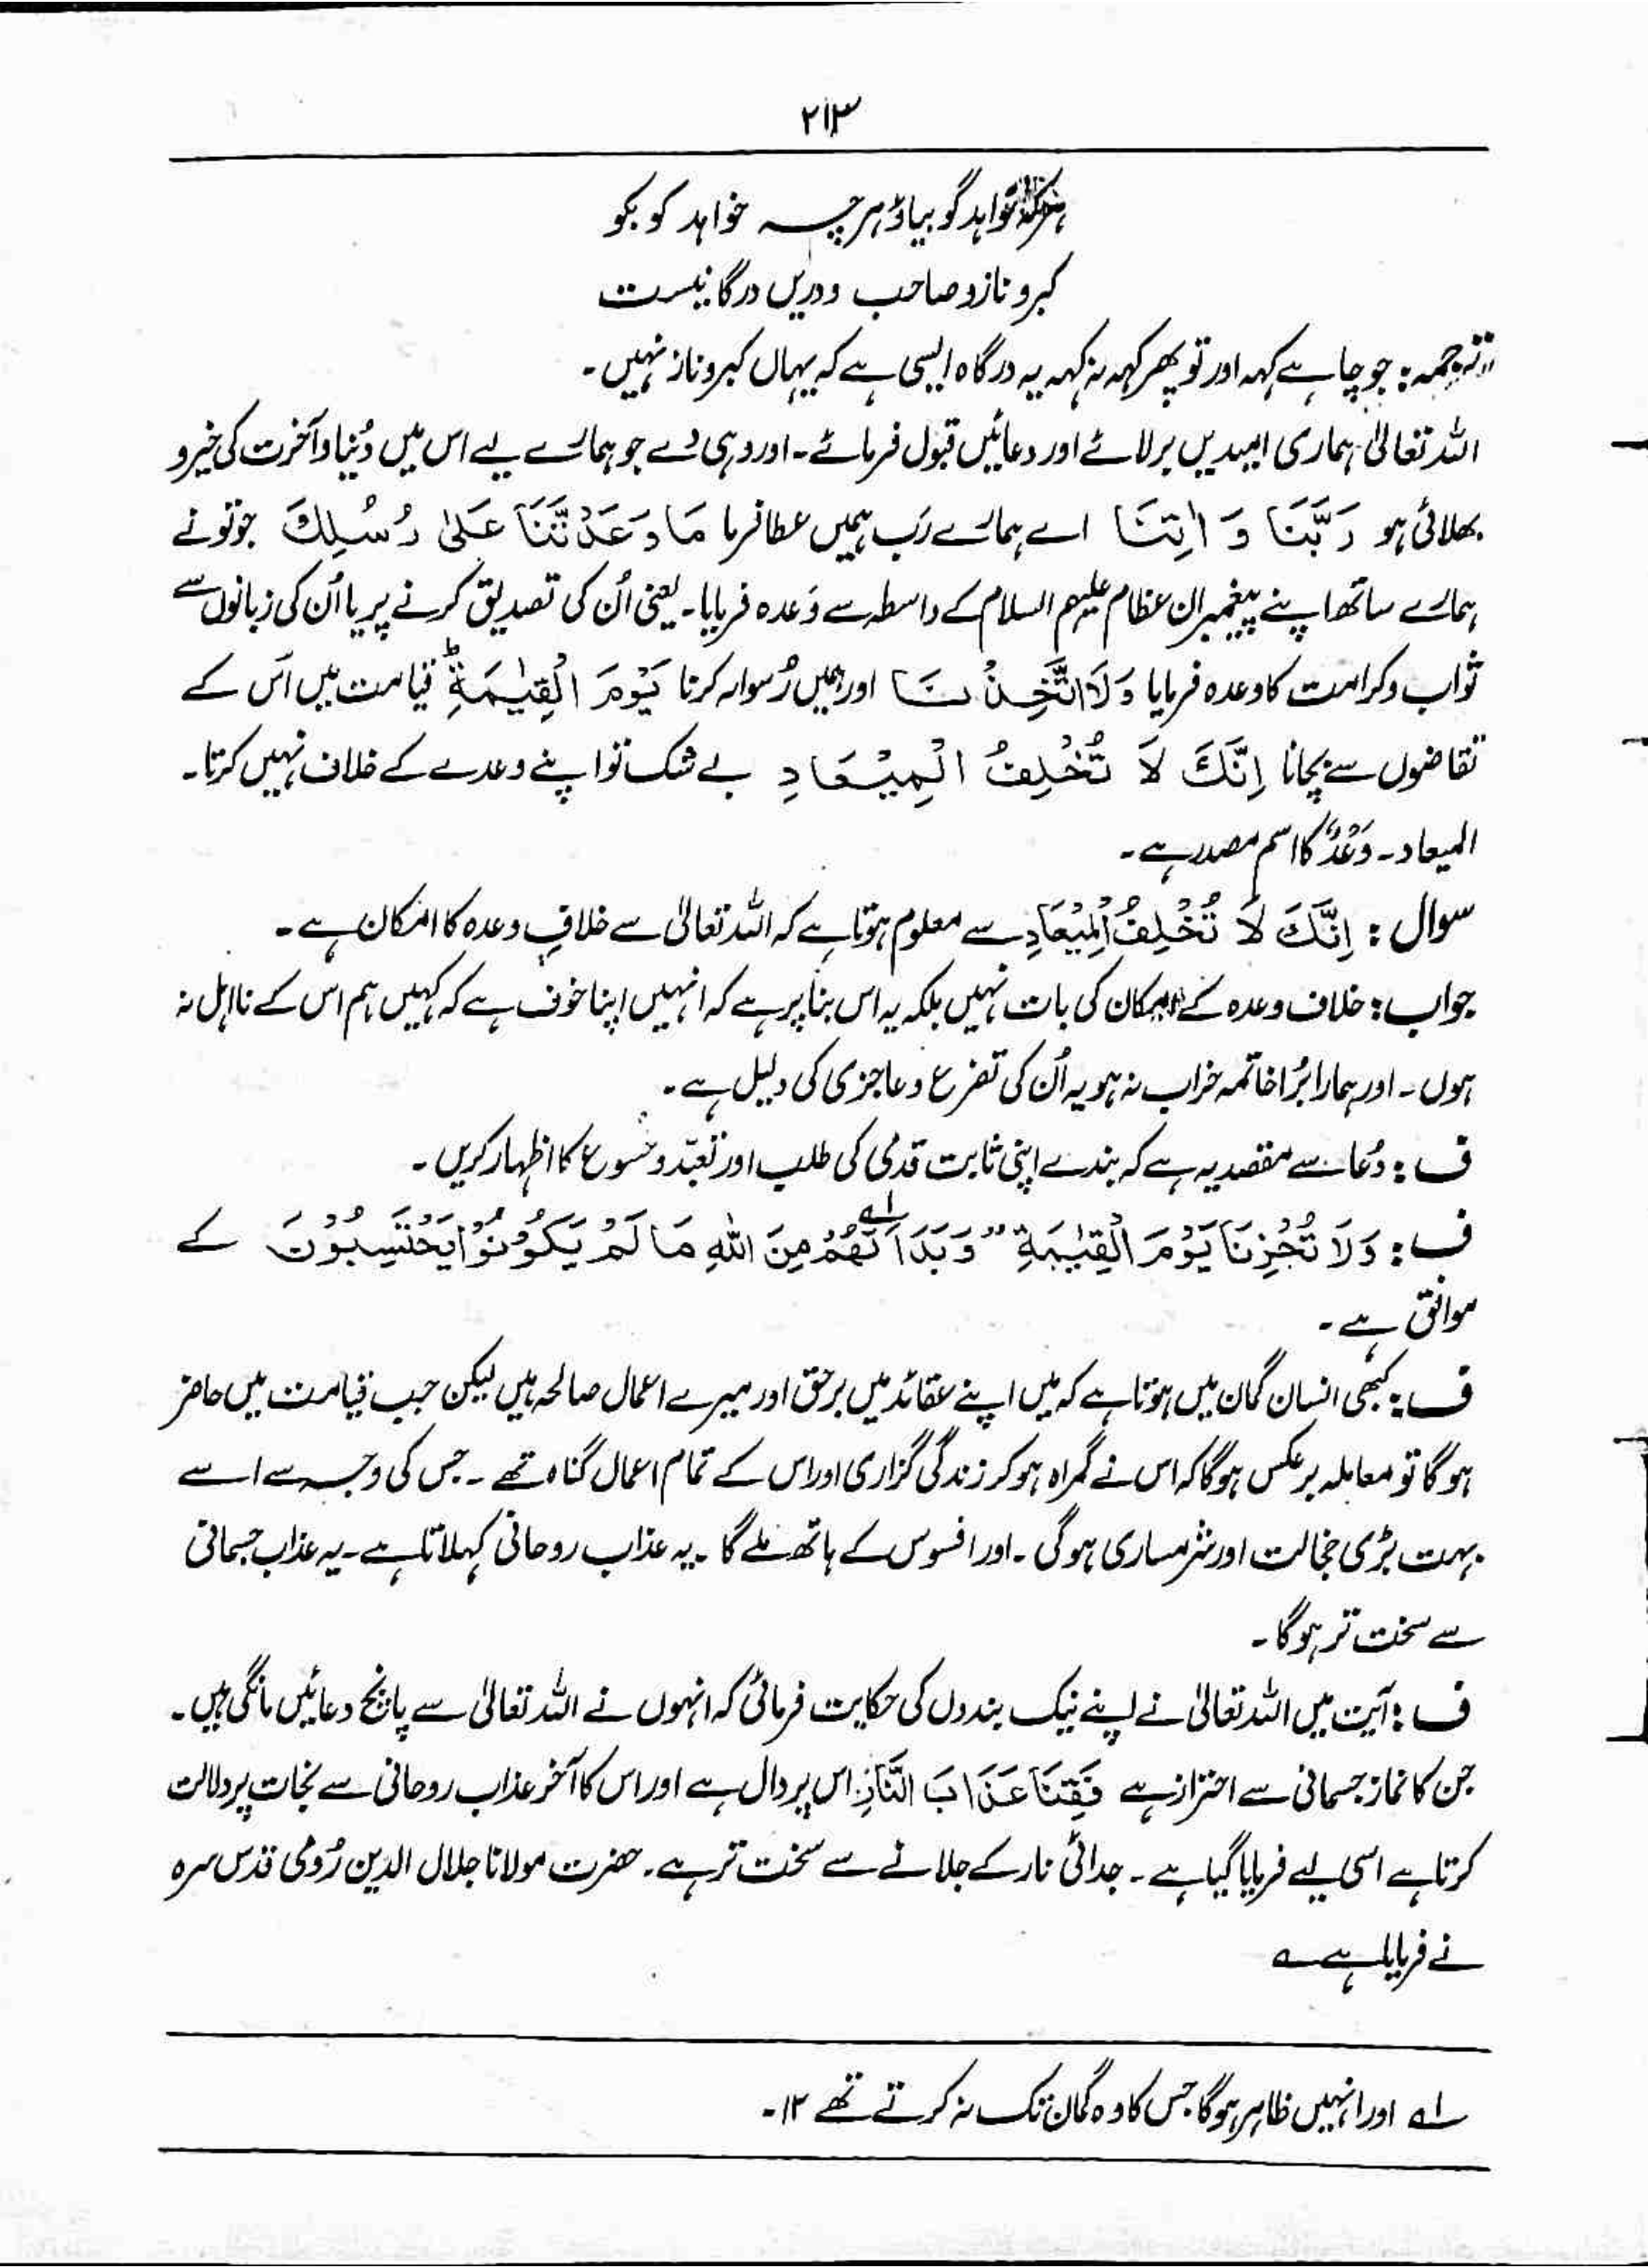 ۲۱۳
خواہد گو بیاؤ ہرچہ خواہد گو بگو
کبر و ناز و حاجب و دریں درگا نیست
ترجمہ: جو چاہے کہہ اور تو پھر کہہ نہ کہہ یہ درگاہ ایسی ہے کہ یہاں کبر و ناز نہیں۔
اللہ تعالیٰ ہماری امیدیں بر لائے اور دعائیں قبول فرمائے۔ اور وہی دے جو ہمارے لیے اس میں دُنیا و آخرت کی خیر و
بھلائی ہو رَبَّنَا وَ اٰتِنَا اے ہمارے رَب ہمیں عطا فرما مَا وَعَدْتَّنَا عَلیٰ رُسُلِكَ جو تو نے
ہمارے ساتھ اپنے پیغمبران عظام علیہم السلام کے واسطہ سے وَعدہ فرمایا۔ یعنی اُن کی تصدیق کرنے پر یا اُن کی زبانوں سے
ثواب و کرامت کا وعدہ فرمایا وَلَا تُخْزِنَا اور ہمیں رُسوا نہ کرنا یَوْمَ الْقِیٰمَةِ ؕ قیامت میں اس کے
تقاضوں سے بچانا اِنَّكَ لَا تُخْلِفُ الْمِیْعَادِ بے شک تو اپنے وعدے کے خلاف نہیں کرتا۔
المیعاد۔ وَعْدٌ کا اسم مصدر ہے۔
سوال: اِنَّكَ لَا تُخْلِفُ الْمِیْعَادِ سے معلوم ہوتا ہے کہ اللہ تعالیٰ سے خلافِ وعدہ کا امکان ہے۔
جواب: خلاف وعدہ کے امکان کی بات نہیں بلکہ یہ اس بنا پر ہے کہ انہیں اپنا خوف ہے کہ کہیں ہم اس کے نااہل نہ
ہوں۔ اور ہمارا بُرا خاتمہ خراب نہ ہو یہ اُن کی تضرع و عاجزی کی دلیل ہے۔
ف: دُعا سے مقصد یہ ہے کہ بندے اپنی ثابت قدمی کی طلب اور تعبّد و خشوع کا اظہار کریں۔
ف: وَلَا تُخْزِنَا یَوْمَ الْقِیٰمَةِ "وَبَدَا لَهُمْ مِنَ اللّٰهِ مَا لَمْ یَكُوْنُوْا یَحْتَسِبُوْنَ لہ کے
موافق ہے۔
ف: کبھی انسان گمان میں ہوتا ہے کہ میں اپنے عقائد میں برحق اور میرے اعمال صالحہ ہیں لیکن جب قیامت میں حاضر
ہوگا تو معاملہ برعکس ہوگا کہ اس نے گمراہ ہو کر زندگی گزاری اور اس کے تمام اعمال گناہ تھے۔ جس کی وجہ سے اسے
بہت بڑی خجالت اور شرمساری ہوگی۔ اور افسوس کے ہاتھ ملے گا۔ یہ عذاب روحانی کہلاتا ہے۔ یہ عذاب جسمانی
سے سخت تر ہوگا۔
ف: آیت میں اللہ تعالیٰ نے اپنے نیک بندوں کی حکایت فرمائی کہ انہوں نے اللہ تعالیٰ سے پانچ دعائیں مانگی ہیں۔
جن کا نماز جسمانی سے احتراز ہے فَقِنَا عَذَابَ النَّارِ اس پر دال ہے اور اس کا آخر عذاب روحانی سے نجات پر دلالت
کرتا ہے اسی لیے فرمایا گیا ہے۔ جدائی نار کے جلانے سے سخت تر ہے۔ حضرت مولانا جلال الدین رُومی قدس سرہ
نے فرمایا ہے ؎
لہ اور انہیں ظاہر ہوگا جس کا وہ گمان تک نہ کرتے تھے ۱۲۔